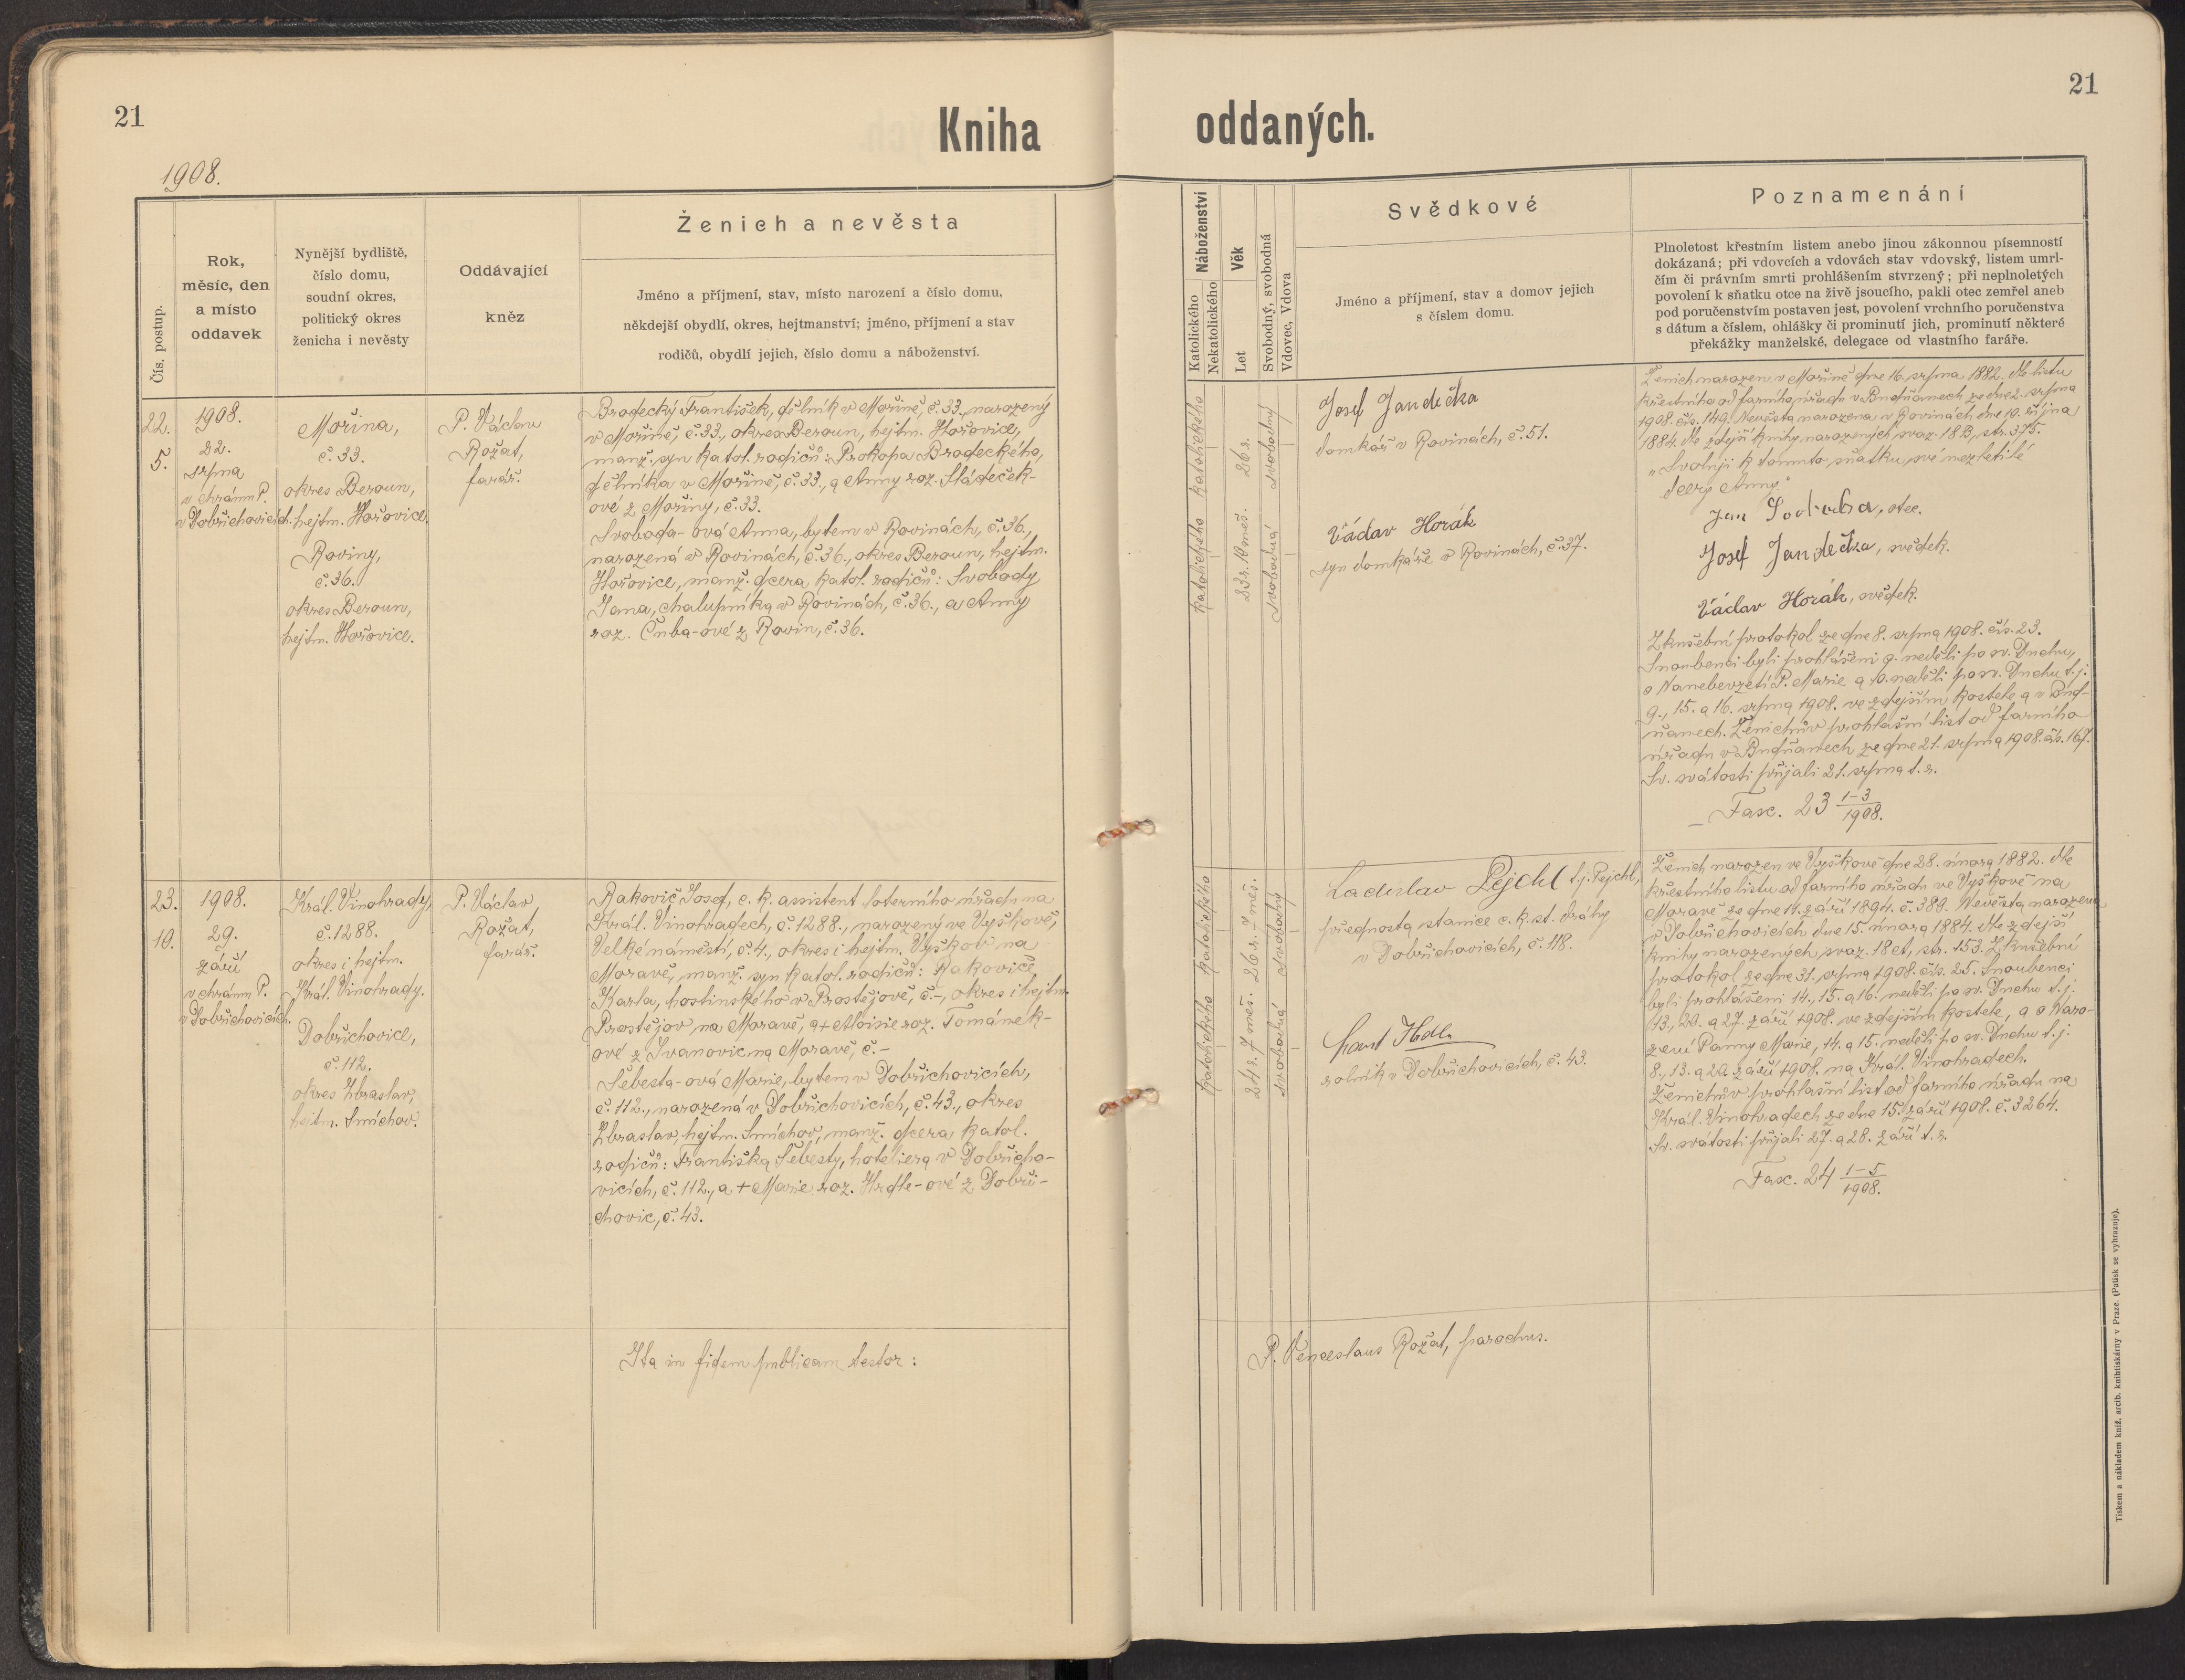 21
21
Kniha oddaných.
1908.
Čís. postup.
Rok,
měsíc, den
a místo
oddavek
Nynější bydliště,
číslo domu,
soudní okres,
politický okres
ženicha i nevěsty
Oddávající
kněz
Ženich a nevěsta
Jméno a příjmení, stav, místo narození a číslo domu,
někdejší obydlí, okres, hejtmanství; jméno, příjmení a stav
rodičů, obydlí jejich, číslo domu a náboženství.
Náboženství
Katolického
Nekatolického
Věk
Let
Svobodný, svobodná
Vdovec, Vdova
Svědkové
Jméno a příjmení, stav a domov jejich
s číslem domu.
Poznamenání
Plnoletost křestním listem anebo jinou zákonnou písemností
dokázaná; při vdovcích a vdovách stav vdovský, listem umrl-
čím či právním smrti prohlášením stvrzený; při neplnoletých
povolení k sňatku otce na živě jsoucího, pakli otec zemřel aneb
pod poručenstvím postaven jest, povolení vrchního poručenstva
s dátum a číslem, ohlášky či prominutí jich, prominutí některé
překážky manželské, delegace od vlastního faráře.
22.
5.
1908.
22.
srpna
v chrámu P.
v Dobřichovicích.
Mořina,
č. 33.
okres Beroun,
hejtm. Hořovice.
Roviny,
č. 36.
okres Beroun,
hejtm. Hořovice.
P. Václav
Rožat,
farář.
Brodecký František, dělník v Mořině, č. 33., narozený
v Mořině, č. 33., okres Beroun, hejtm. Hořovice,
manž. syn katol. rodičů: Prokopa Brodeckého,
dělníka v Mořině, č. 33., a Anny roz. Sládeček-
ové z Mořiny, č. 33.
Svoboda-ová Anna, bytem v Rovinách, č. 36.,
narozená v Rovinách, č. 36., okres Beroun, hejtm.
Hořovice, manž. dcera katol. rodičů: Svobody
Jana, chalupníka v Rovinách, č. 36., a Anny
roz. Čuba-ové z Rovin, č. 36.
katolického katolického
23 r. 10 měs. 26 r.
svobodná svobodný
Josef Jandečka
domkář v Rovinách, č. 51.
Václav Horák
syn domkáře v Rovinách, č. 37.
Ženich narozen v Mořině dne 16. srpna 1882. dle listu
křestního od farního úřadu v Budňanech ze dne 2. srpna
1908. čís. 149. Nevěsta narozena v Rovinách dne 10. října
1884. dle zdejší knihy narozených svaz. 18 B, str. 375.
„Svoluji k tomuto sňatku své nezletilé
dcery Anny."
Jan Svoboda, otec.
Josef Jandečka, svědek.
Václav Horák, svědek.
Zkušební protokol ze dne 8. srpna 1908. čís. 23.
Snoubenci byli prohlášeni 9. neděli po sv. Duchu,
o Nanebevzetí P. Marie a 10. neděli po sv. Duchu t. j.
9., 15. a 16. srpna 1908. ve zdejším kostele a v Bud-
ňanech. Ženichův prohlašní list od farního
úřadu v Budňanech ze dne 21. srpna 1908. čís. 167.
Sv. svátosti přijali 21. srpna t. r.
Fasc. 23 1–3/1908.
23.
10.
1908.
29.
září
v chrámu P.
v Dobřichovicích.
Král. Vinohrady,
č. 1288.
okres i hejtm.
Král. Vinohrady.
Dobřichovice,
č. 112.
okres Zbraslav,
hejtm. Smíchov.
P. Václav
Rožat,
farář.
Rakovič Josef, c. k. assistent loterního úřadu na
Král. Vinohradech, č. 1288., narozený ve Vyškově,
Velké náměstí, č. 4., okres i hejtm. Vyškov na
Moravě, manž. syn katol. rodičů: Rakoviče
Karla, hostinského v Prostějově, č.–, okres i hejtm.
Prostějov na Moravě, a + Aloisie roz. Tománek-
ové z Ivanovic na Moravě, č.–
Šebesta-ová Marie, bytem v Dobřichovicích,
č. 112., narozená v Dobřichovicích, č. 43., okres
Zbraslav, hejtm. Smíchov, manž. dcera katol.
rodičů: Františka Šebesty, hoteliera v Dobřicho-
vicích, č. 112., a + Marie roz. Hrdle-ové z Dobři-
chovic, č. 43.
katolického katolického
24 r. 7 měs. 26 r. 7 měs.
svobodná svobodný
Ladislav Pejchl t. j. Pejchl,
přednosta stanice c. k. st. dráhy
v Dobřichovicích, č. 118.
rolník v Dobřichovicích, č. 43.
Ženich narozen ve Vyškově dne 28. února 1882. dle
křestního listu od farního úřadu ve Vyškově na
Moravě ze dne 11. září 1894. č. 389. Nevěsta narozena
v Dobřichovicích dne 15. února 1884. dle zdejší
knihy narozených svaz. 18 A, str. 153. Zkušební
protokol ze dne 31. srpna 1908. čís. 25. Snoubenci
byli prohlášeni 14., 15. a 16. neděli po sv. Duchu t. j.
13., 20. a 27. září 1908. ve zdejším kostele, a o Naro-
zení Panny Marie, 14. a 15. neděli po sv. Duchu t. j.
8., 13. a 20. září 1908. na Král. Vinohradech.
Ženichův prohlašní list od farního úřadu na
Král. Vinohradech ze dne 15. září 1908. č. 3264.
Sv. svátosti přijali 27. a 28. září t. r.
Fasc. 24 1–5/1908.
Ita in fidem publicam testor:
P. Venceslaus Rožat, parochus.
Tiskem a nákladem kníž. arcib. knihtiskárny v Praze. (Patisk se vyhrazuje).